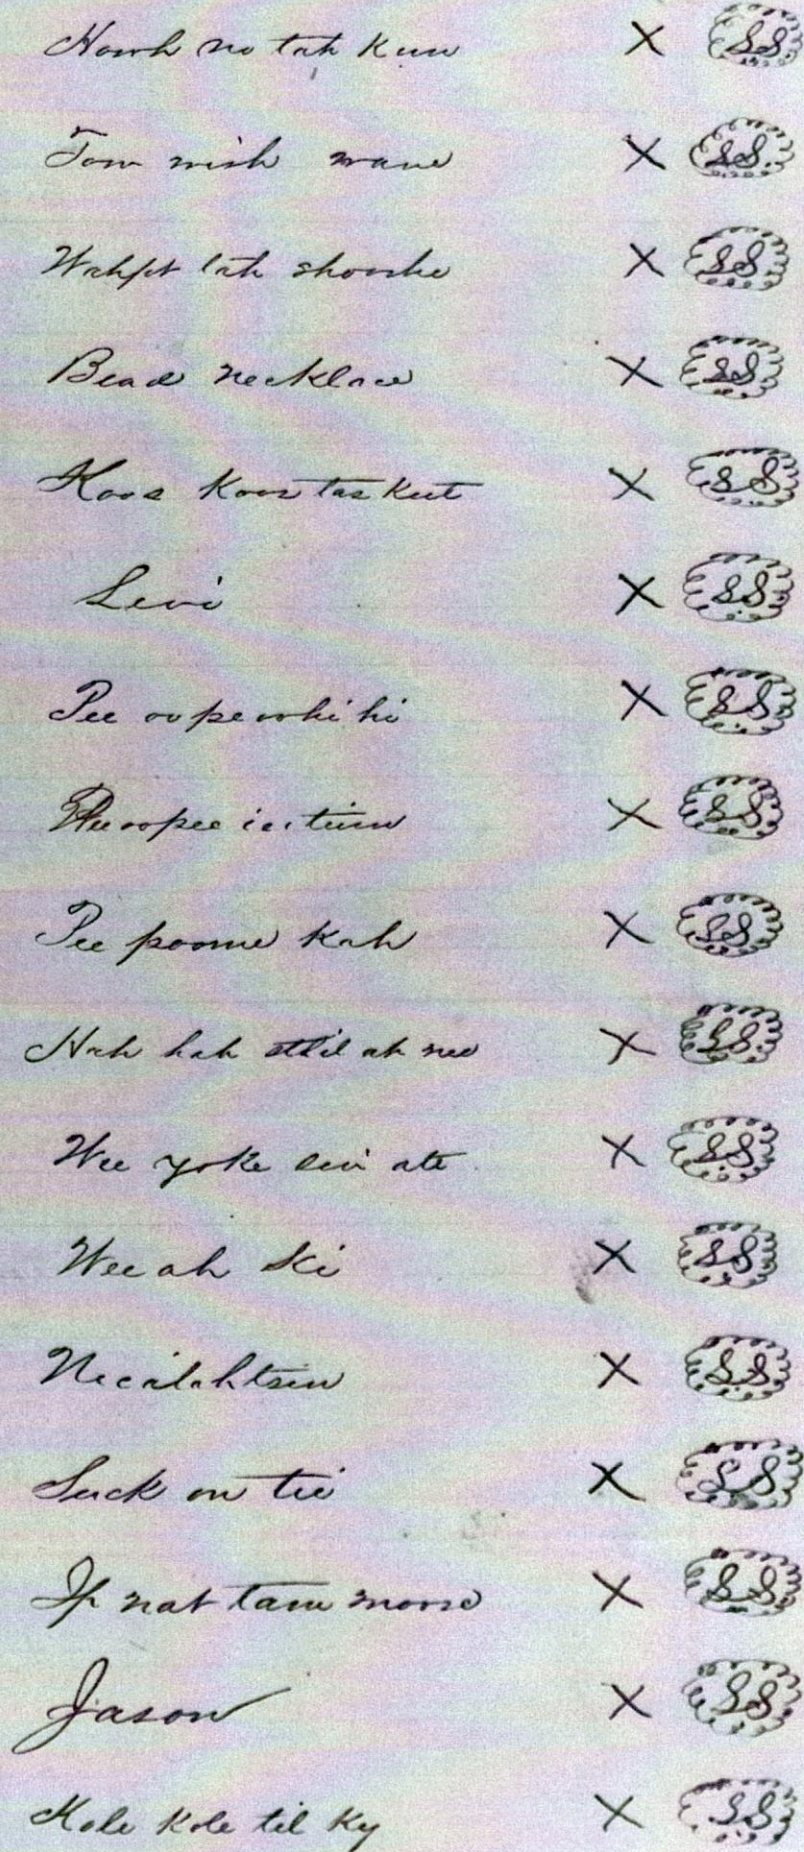 Howh no tah kun X SS.
Tow wish wane X SS.
Wahpt tah shooshe X SS
Bead necklace X SS
Koos Koos tas kut X SS
Levi X SS
Pee oo pe whi hi X SS
Pee oo pee iec tum X SS
Pee poome kah X SS
Hah hah stlil at me X SS.
Wee yoke sin ate X SS
Wee ah ki X SS
Necalahtsin X SS
Suck on tie X SS
Ip nat tam moose X SS
Jason X SS
Kole kole til ky X SS